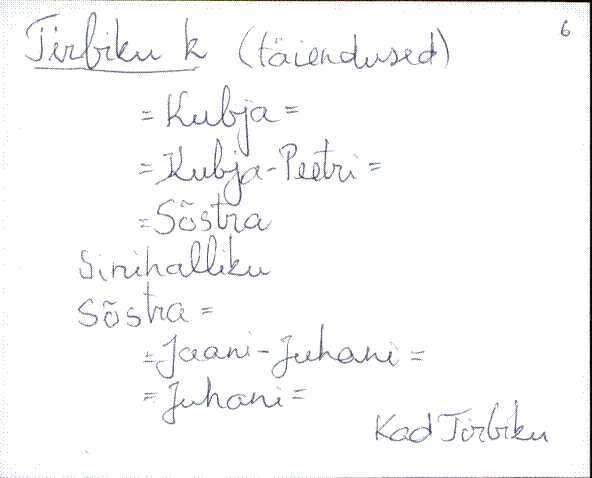 6
Tirbiku k (täiendused)
= Kubja =
= Kubja-Peetri =
= Sõstra
Sinihalliku
Sõstra =
= Jaani-Juhani =
= Juhani =
Kad Tirbiku